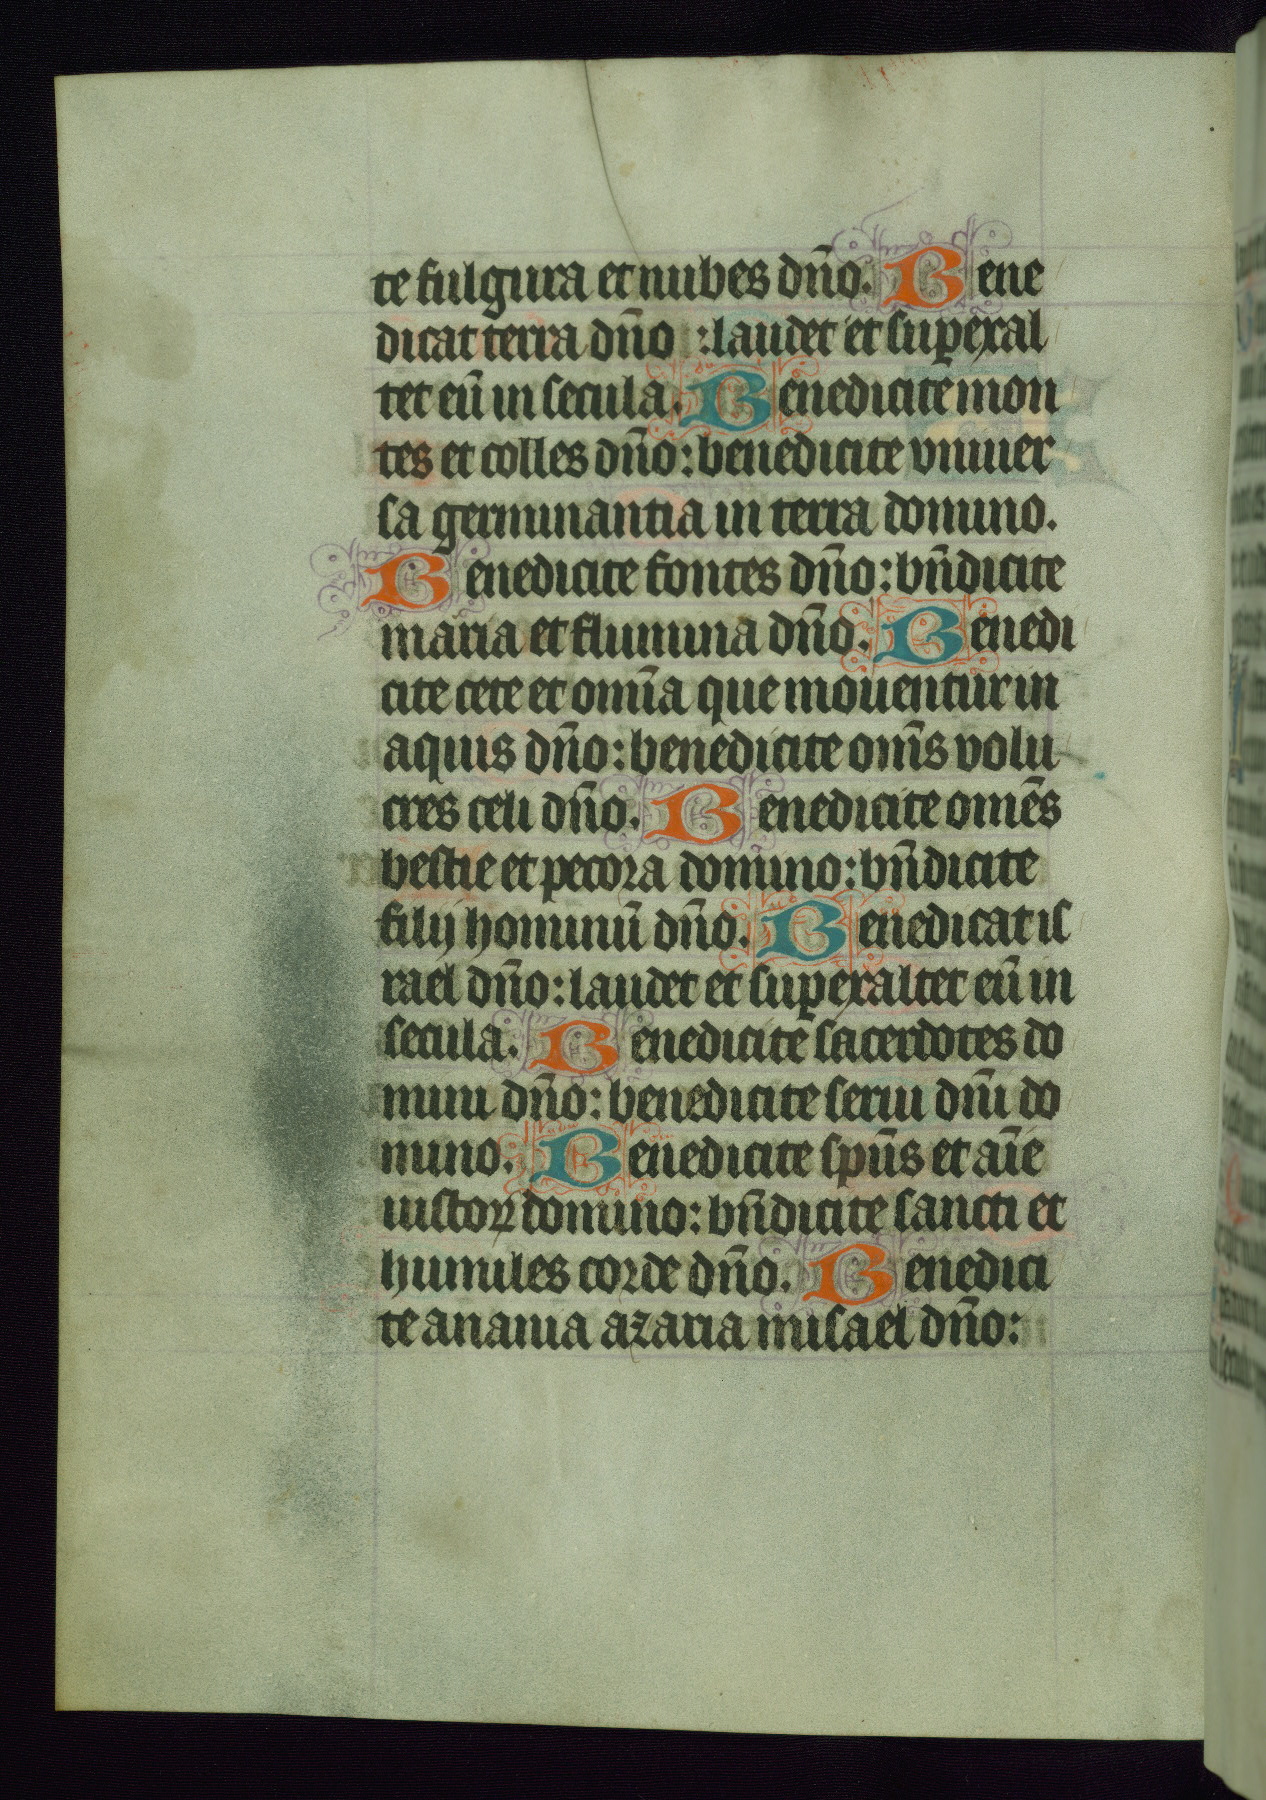 te fulgura et nubes dn̄o. Bene
dicat terra dn̄o : laudet et suꝑexal
tet eū in secula. Benedicite mon
tes et colles dn̄o : benedicite vniuer
sa germinantia in terra domino.
Benedicite fontes dn̄o : bn̄dicite
maria et flumina dn̄o. Benedi
cite cete et omīa que mouentur in
aquis dn̄o : benedicite om̄s volu
cres celi dn̄o. Benedicite omēs
bestie et pecora domino : bn̄dicite
filij hominū dn̄o. Benedicat is
rael dn̄o : laudet et suꝑexaltet eū in
secula. Benedicite sacerdotes do
mini dn̄o : benedicite serui dn̄i do
mino. Benedicite sp̄us et aīe
iustoꝝ domino : bn̄dicite sancti et
humiles corde dn̄o. Benedici
te anania azaria misael dn̄o :